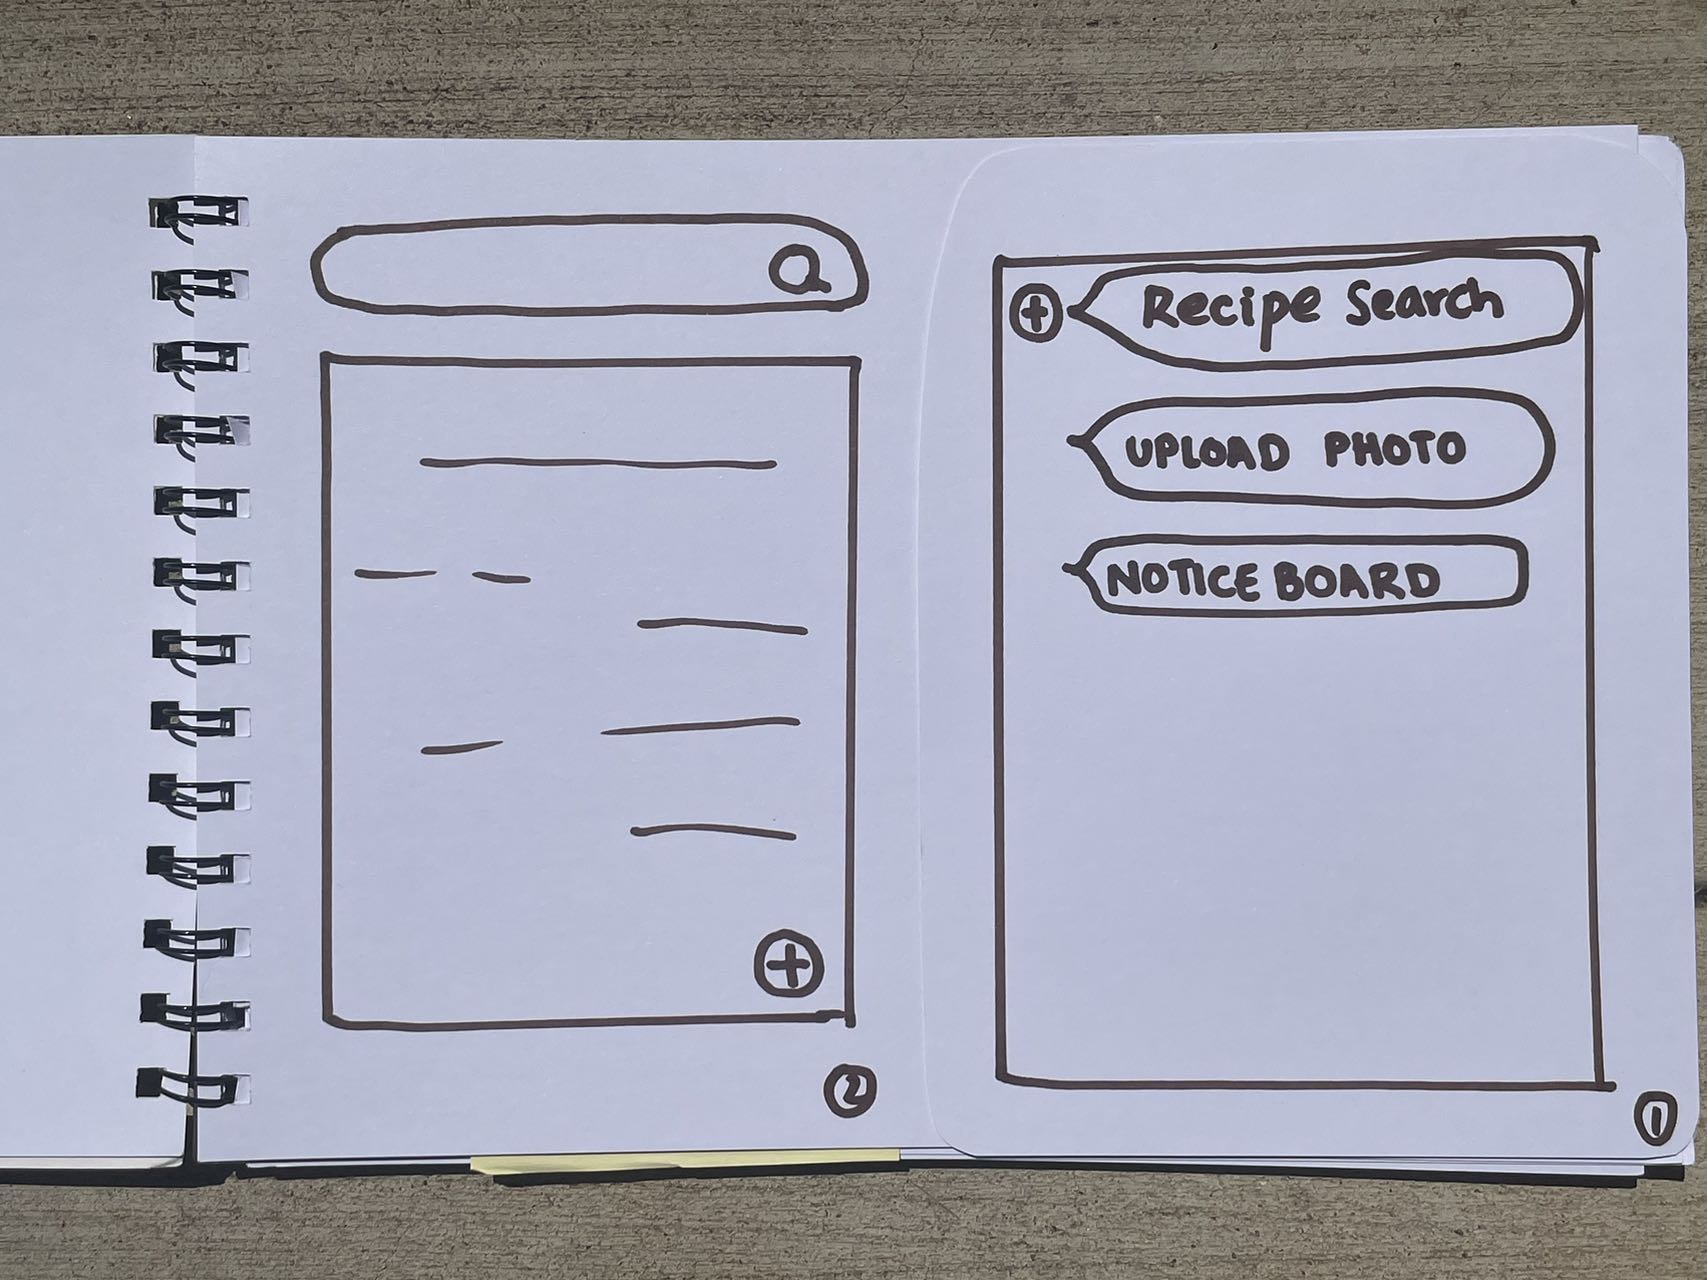 2
Recipe Search
UPLOAD PHOTO
NOTICE BOARD
1